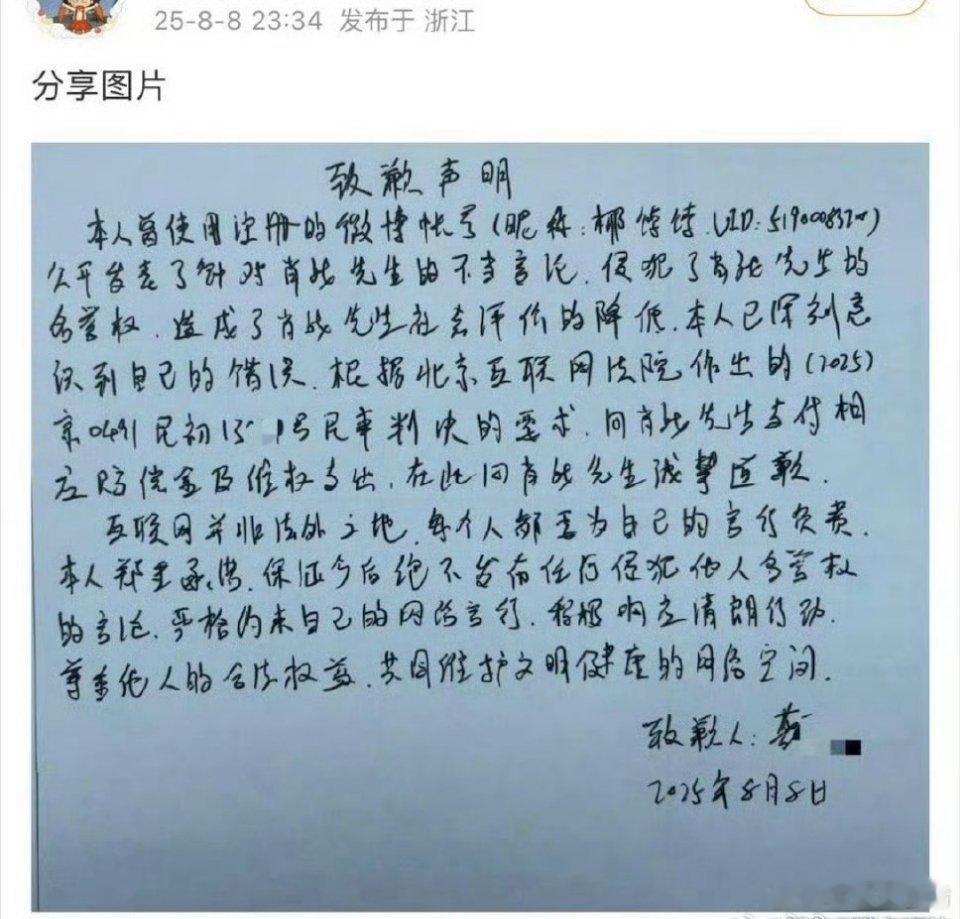 25-8-8 23:34 发布于 浙江
分享图片
致歉声明
本人曾使用注册的微博帐号(昵称:椰饽饽.UID:5190008370)
公开发表了针对肖战先生的不当言论.侵犯了肖战先生的
名誉权.造成了肖战先生社会评价的降低.本人已深刻意
识到自己的错误.根据北京互联网法院作出的(2025)
京0491民初15 1号民事判决的要求.向肖战先生支付相
应赔偿金及维权支出.在此向肖战先生诚挚道歉.
互联网并非法外之地.每个人都要为自己的言行负责.
本人郑重承诺.保证今后绝不发布任何侵犯他人名誉权
的言论.严格约束自己的网络言行.积极响应清朗行动.
尊重他人的合法权益.共同维护文明健康的网络空间.
致歉人:
2025年8月8日